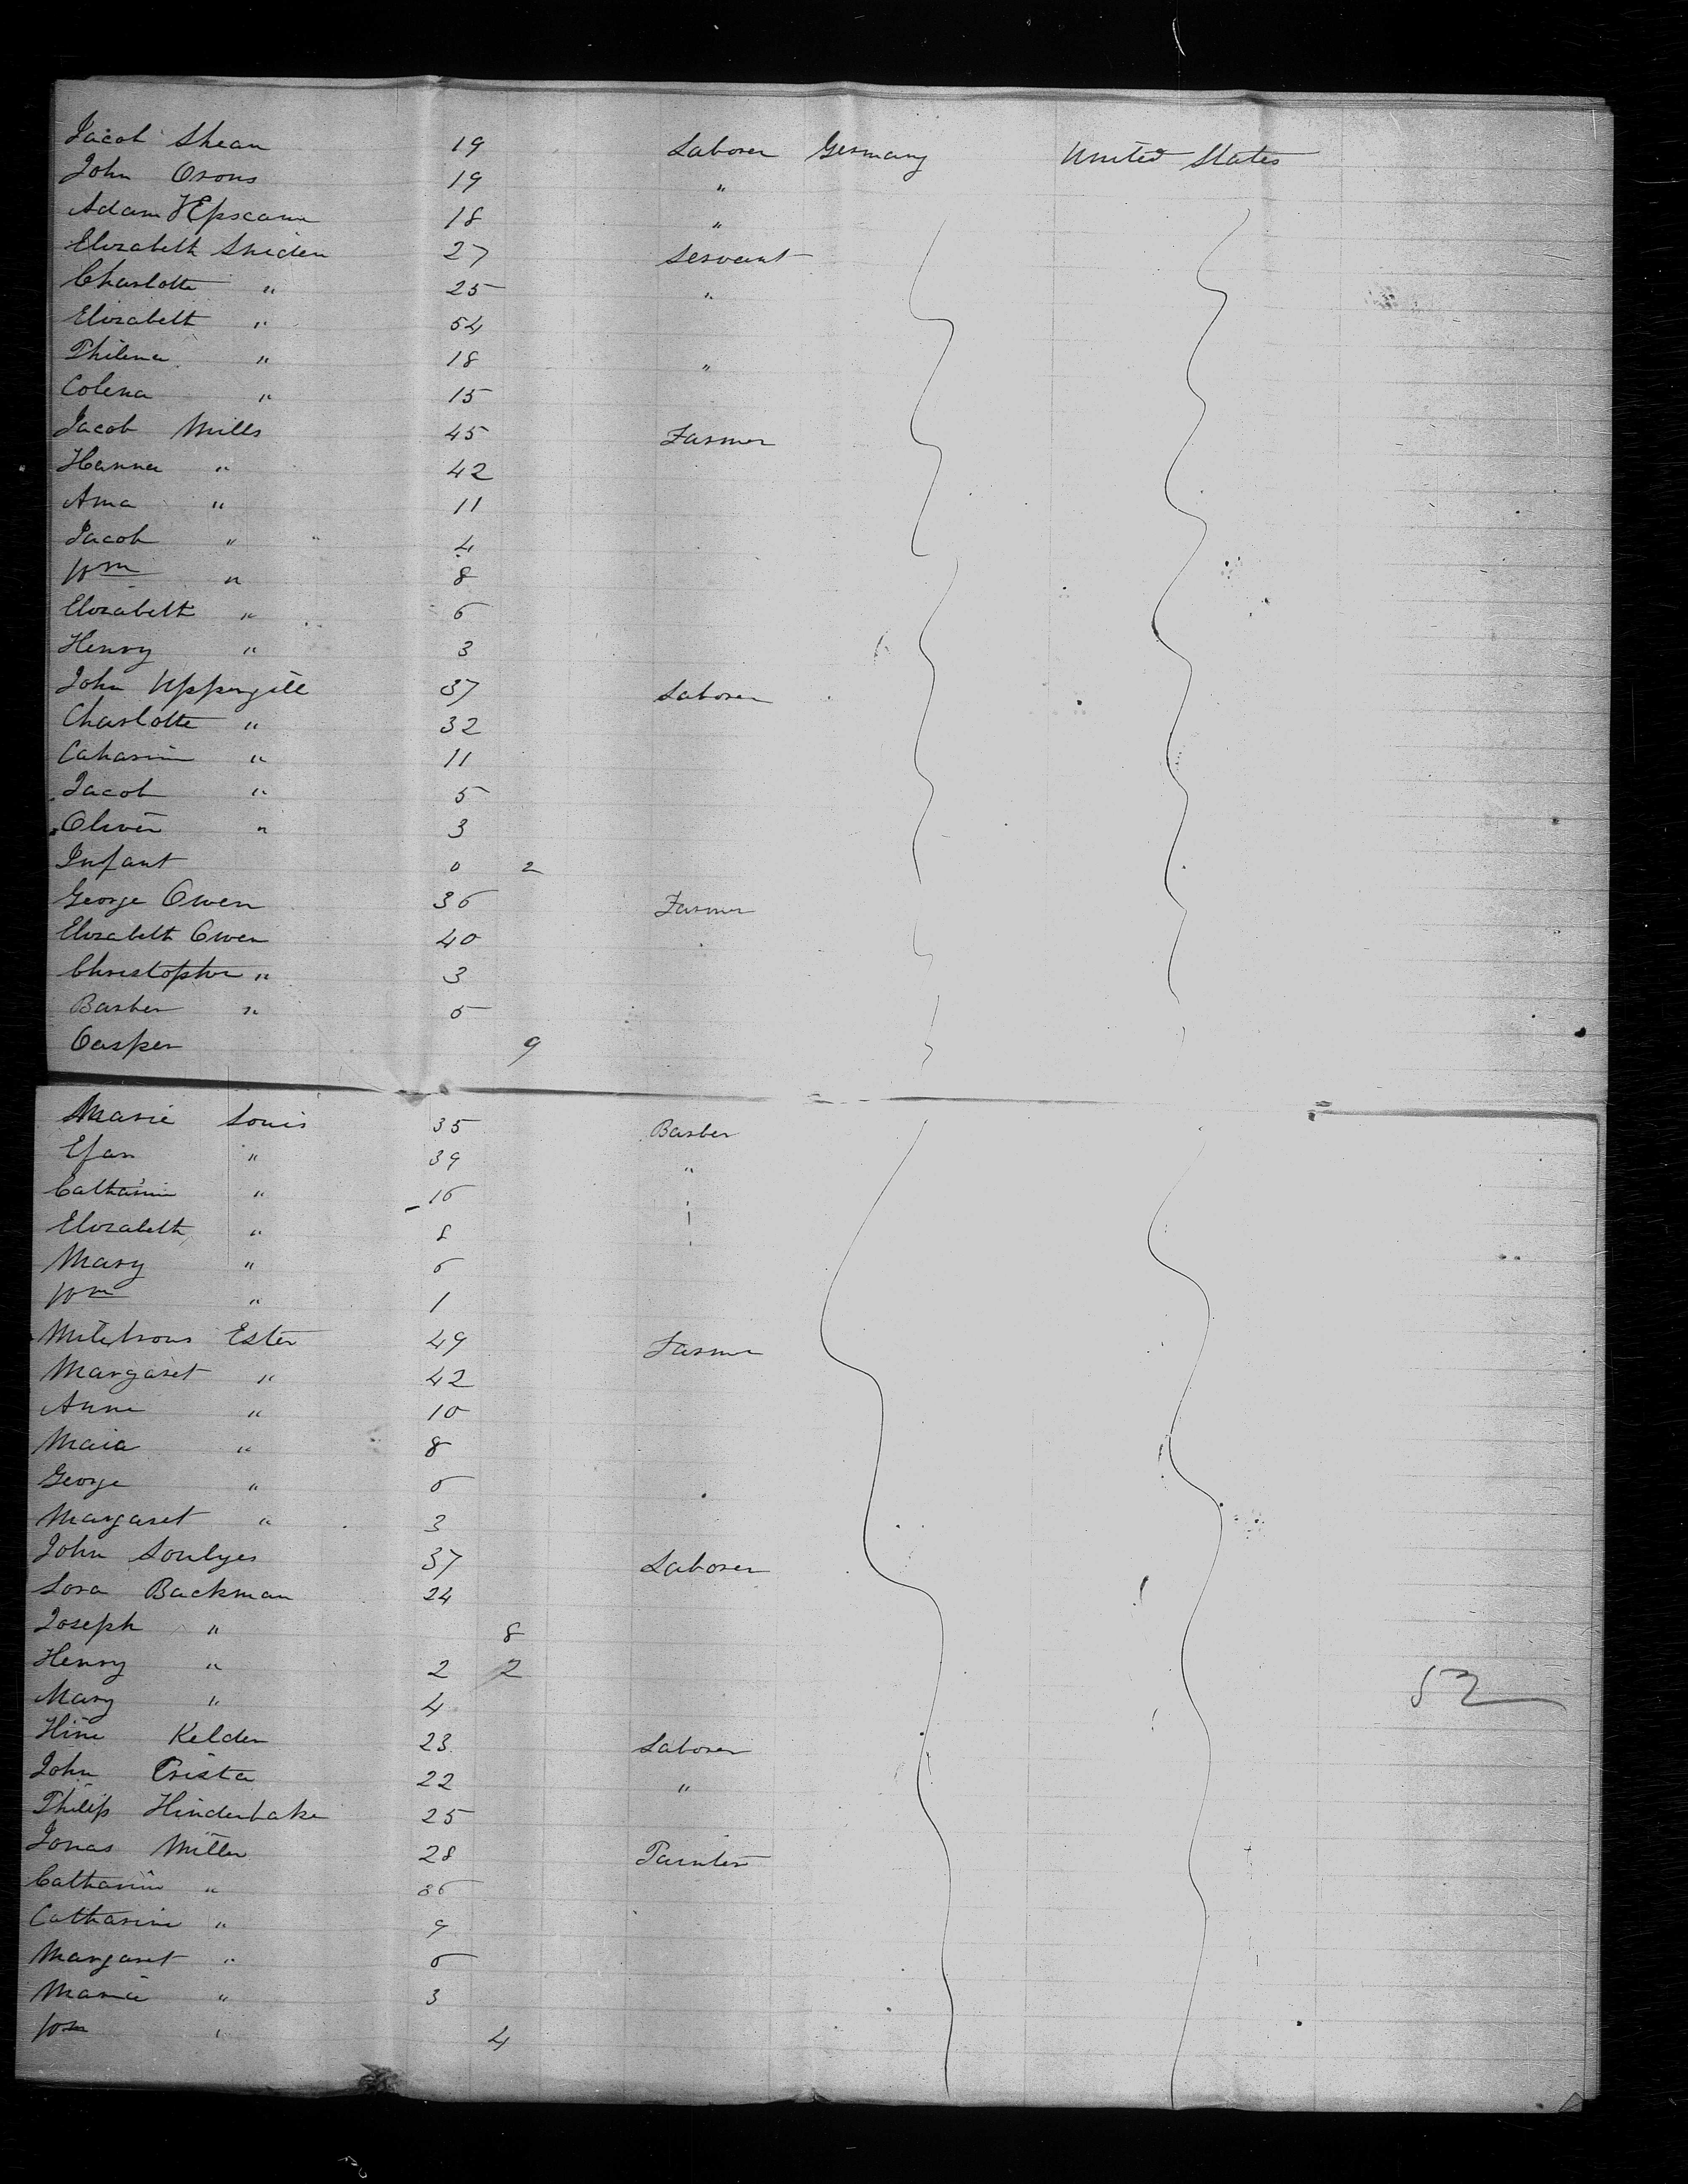 Jacob Shean 19 Laborer Germany United States
John Orons 19 "
Adam 18 "
Elizabeth Sniden 27 Servant
Charlotte " 25 "
Elizabeth " 54
Philena " 18 "
Colena " 15
Jacob Mills 45 Farmer
Hanna " 42
Ama " 11
Jacob " 4
Wm " 8
Elizabeth " 6
Henry " 3
John Uppergill 37 Laborer
Charlotte " 32
Catharin " 11
Jacob " 5
Oliver " 3
Infant 0 2
George Owen 36 Farmer
Elizabeth Owen 40
Christopher " 3
Barber " 5
Casper 9
Marie Louis 35 Barber
Efan " 39 "
Catharin " 16
Elizabeth " 8
Mary " 6
Wm " 1
Ester 49 Farmer
Margaret " 42
Anne " 10
Maia " 8
George " 5
Margaret " 3
John 37 Laborer
Lora Backman 24
Joseph " 8
Henry " 2 2
Mary " 4
52
Hine Kelder 23 Laborer
John Crista 22 "
Philip Hinderhake 25
Jonas Miller 28 Painter
Catharin " 36
Catharine " 9
Margaret " 5
Maria " 3
Wm " 4